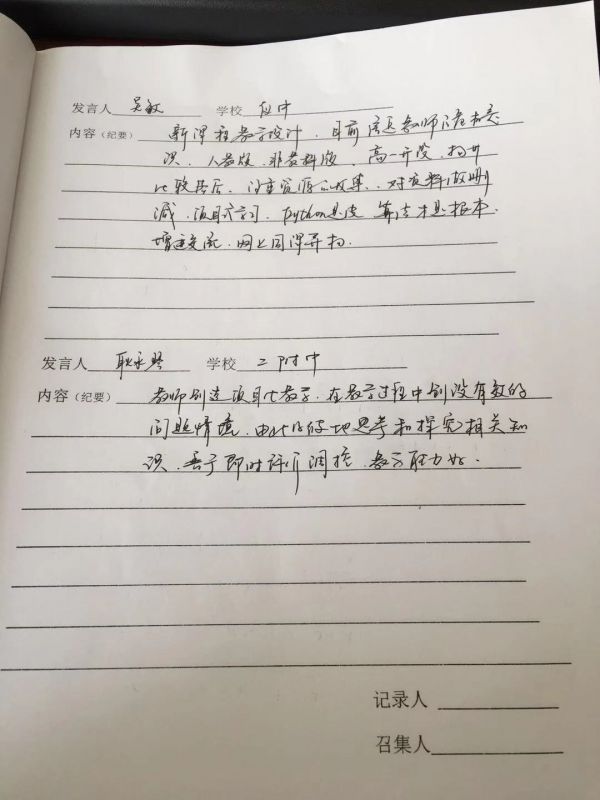 发言人 吴敏 学校 位中
内容（纪要） 新课程教学设计，目前 教师 意
识，人教版，非教科版，高一开设，
比较落后，注重资源的收集，对教料做删
减，项目式学习，python是皮 算法才是根本
增进交流，网上同课异构．
发言人 耿永琴 学校 二附中
内容（纪要） 教师创造项目化教学，在教学过程中创设有效的
问题情境，由此及彼地思考和探究相关知
识，善于即时评价调控，教学能力好．
记录人
召集人